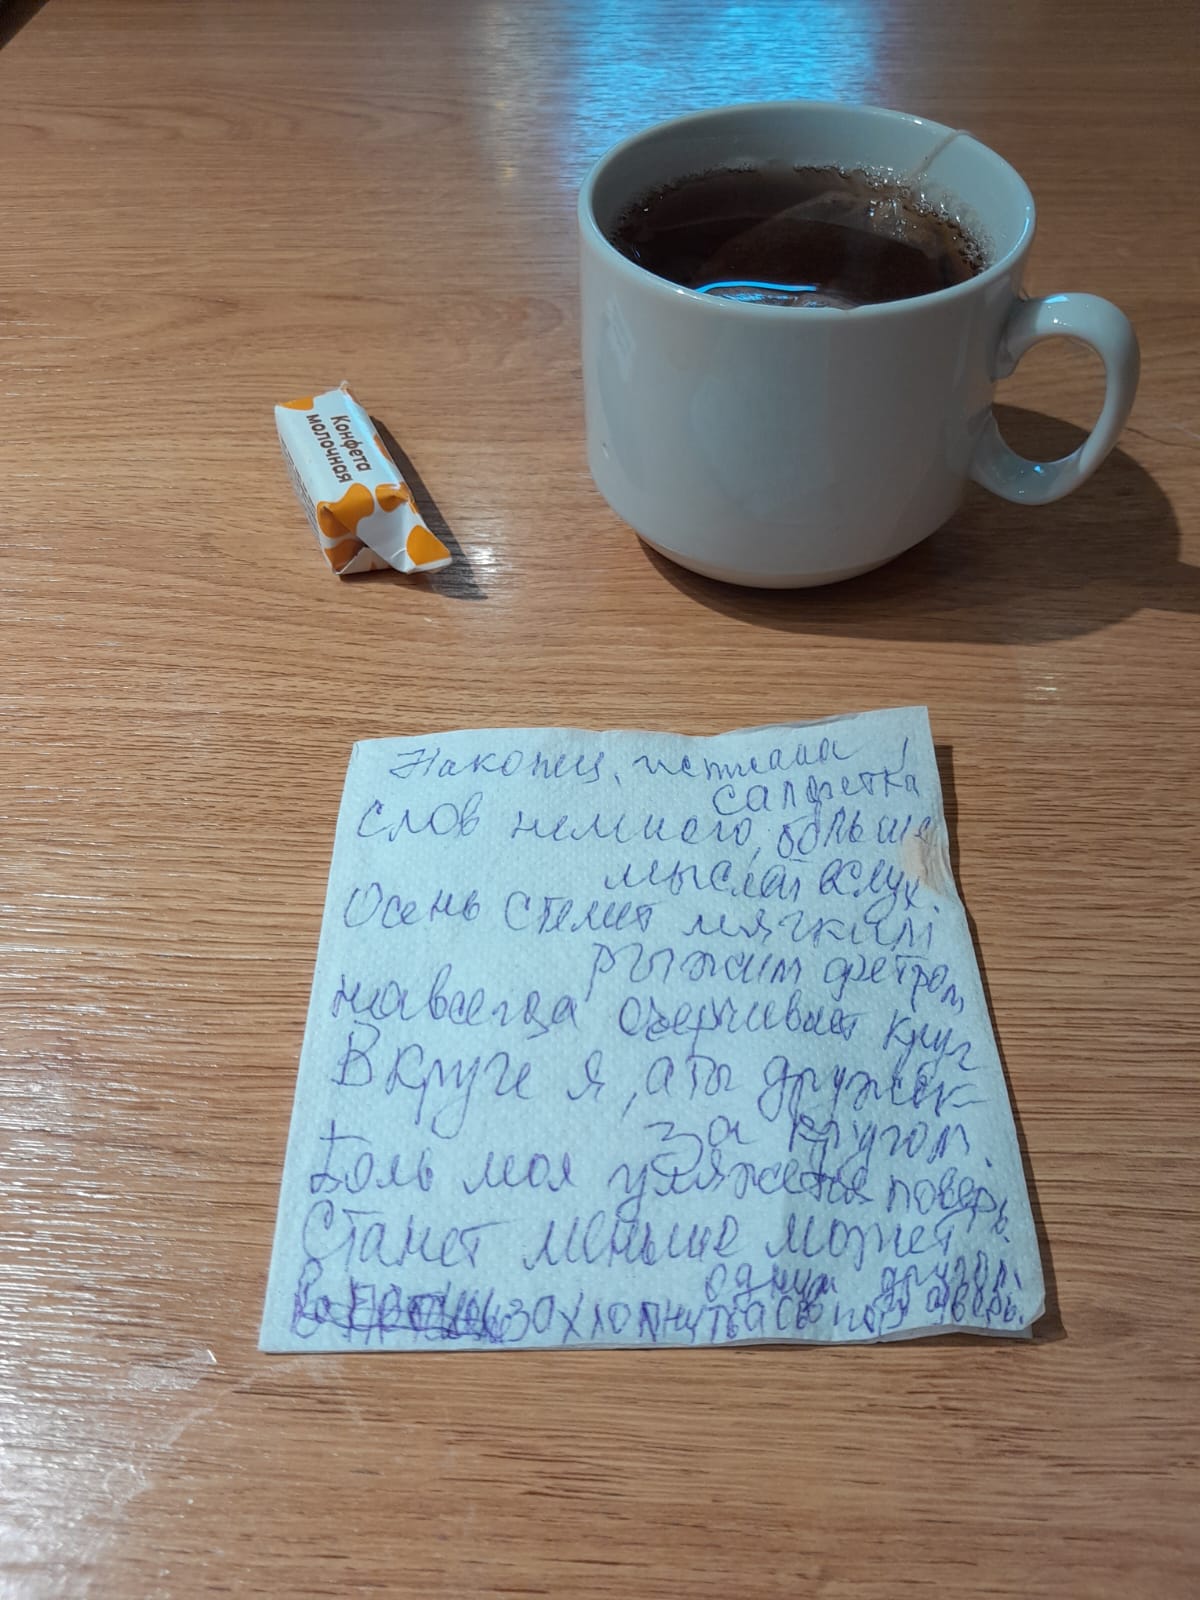 Конфета
молочная
Наконец,
салфетка
Слов немного, больше
мыслей вслух.
Осень стелет мягким
рыжим фетром
навсегда очерчивает круг
В круге я, а ты дружок-
за кругом.
Боль моя уляжется поверь.
Станет меньше может
одним другом.
захлопнулась дверь.